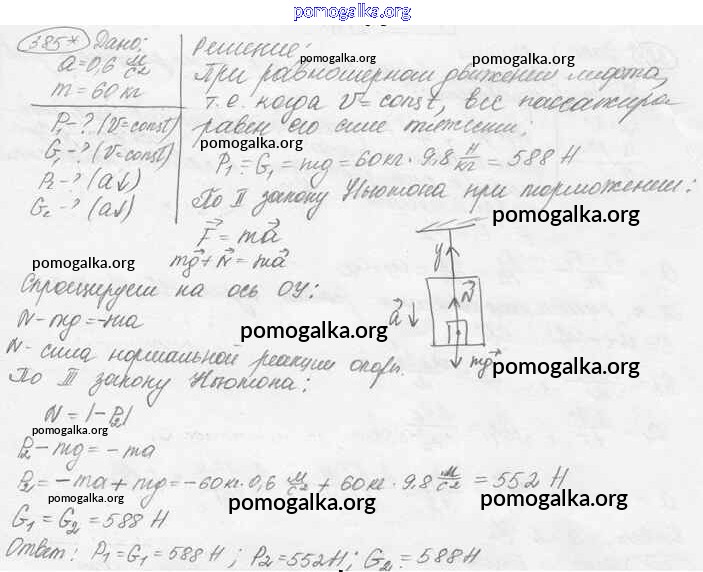 pomogalka.org
385* Дано:
a=0,6 м/с2
m=60кг
P1-? (V=const)
G1-? (V=const)
P2-? (a↓)
G2-? (a↓)
Решение:
pomogalka.org
При равномерном движении лифта,
т.е. когда V=const, вес пассажира
pomogalka.org
равен его силе тяжести:
pomogalka.org
P1=G1=mg=60кг·9,8 Н/кг=588 Н
По II закону Ньютона при торможении:
pomogalka.org
F=ma
mg+N=ma
pomogalka.org
y
N
a
mg
Спроецируем на ось ОУ:
N-mg=-ma
pomogalka.org
N- сила нормальной реакции опоры.
pomogalka.org
По III закону Ньютона:
N=|-P2|
pomogalka.org
P2-mg=-ma
P2=-ma+mg=-60кг·0,6 м/с2+60кг·9,8 м/с2=552 Н
pomogalka.org
pomogalka.org
pomogalka.org
G1=G2=588 Н
Ответ: P1=G1=588 Н; P2=552Н; G2=588Н